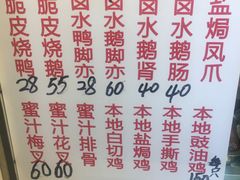 脆皮烧鸭 28
脆皮烧鹅 55
卤水鸭脚亦 28
卤水鹅脚亦 60
卤水鹅肾 40
卤水鹅肠 40
盐焗凤爪
蜜汁梅叉 60
蜜汁花叉 60
蜜汁排骨
本地白切鸡
本地盐焗鸡
本地手撕鸡
本地豉油鸡